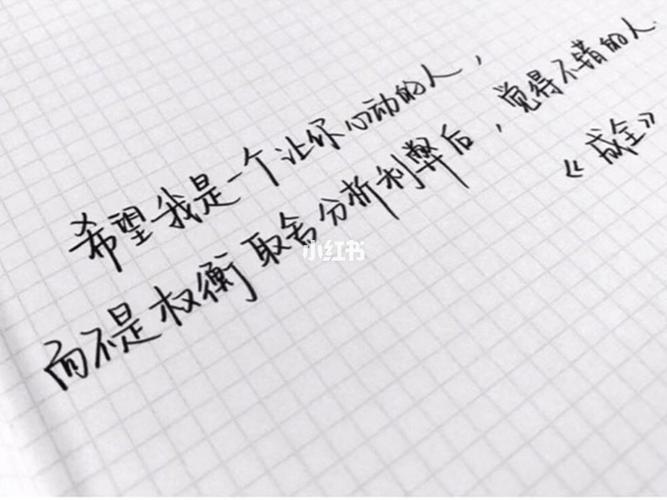 希望我是一个让你心动的人，
而不是权衡取舍分析利弊后，觉得不错的人.
《成全》
小红书